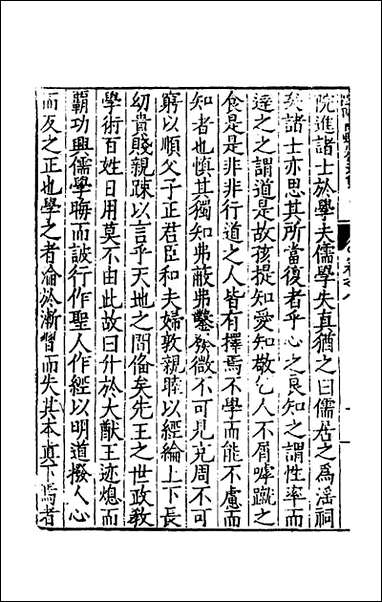 院進諸士於學夫儒學失真猶之曰儒居之為淫祠
矣諸士亦思其所當復者乎心之良知之謂性率而
逹之之謂道是故孩提知愛知敬乞人不屑嘑蹴之
食是是非非行道之人皆有擇焉不學而能不慮而
知者也慎其獨知弗蔽弗鑿發微不可見充周不可
窮以順父子正君臣和夫婦敦親睦以經綸上下長
幼貴賤親踈以言乎天地之間俻矣先王之世政教
學術百姓日用莫不由此故曰升於大猷王迹熄而
覇功興儒學晦而詖行作聖人作經以明道撥人心
而反之正也學之者淪於漸習而失其本真下焉者